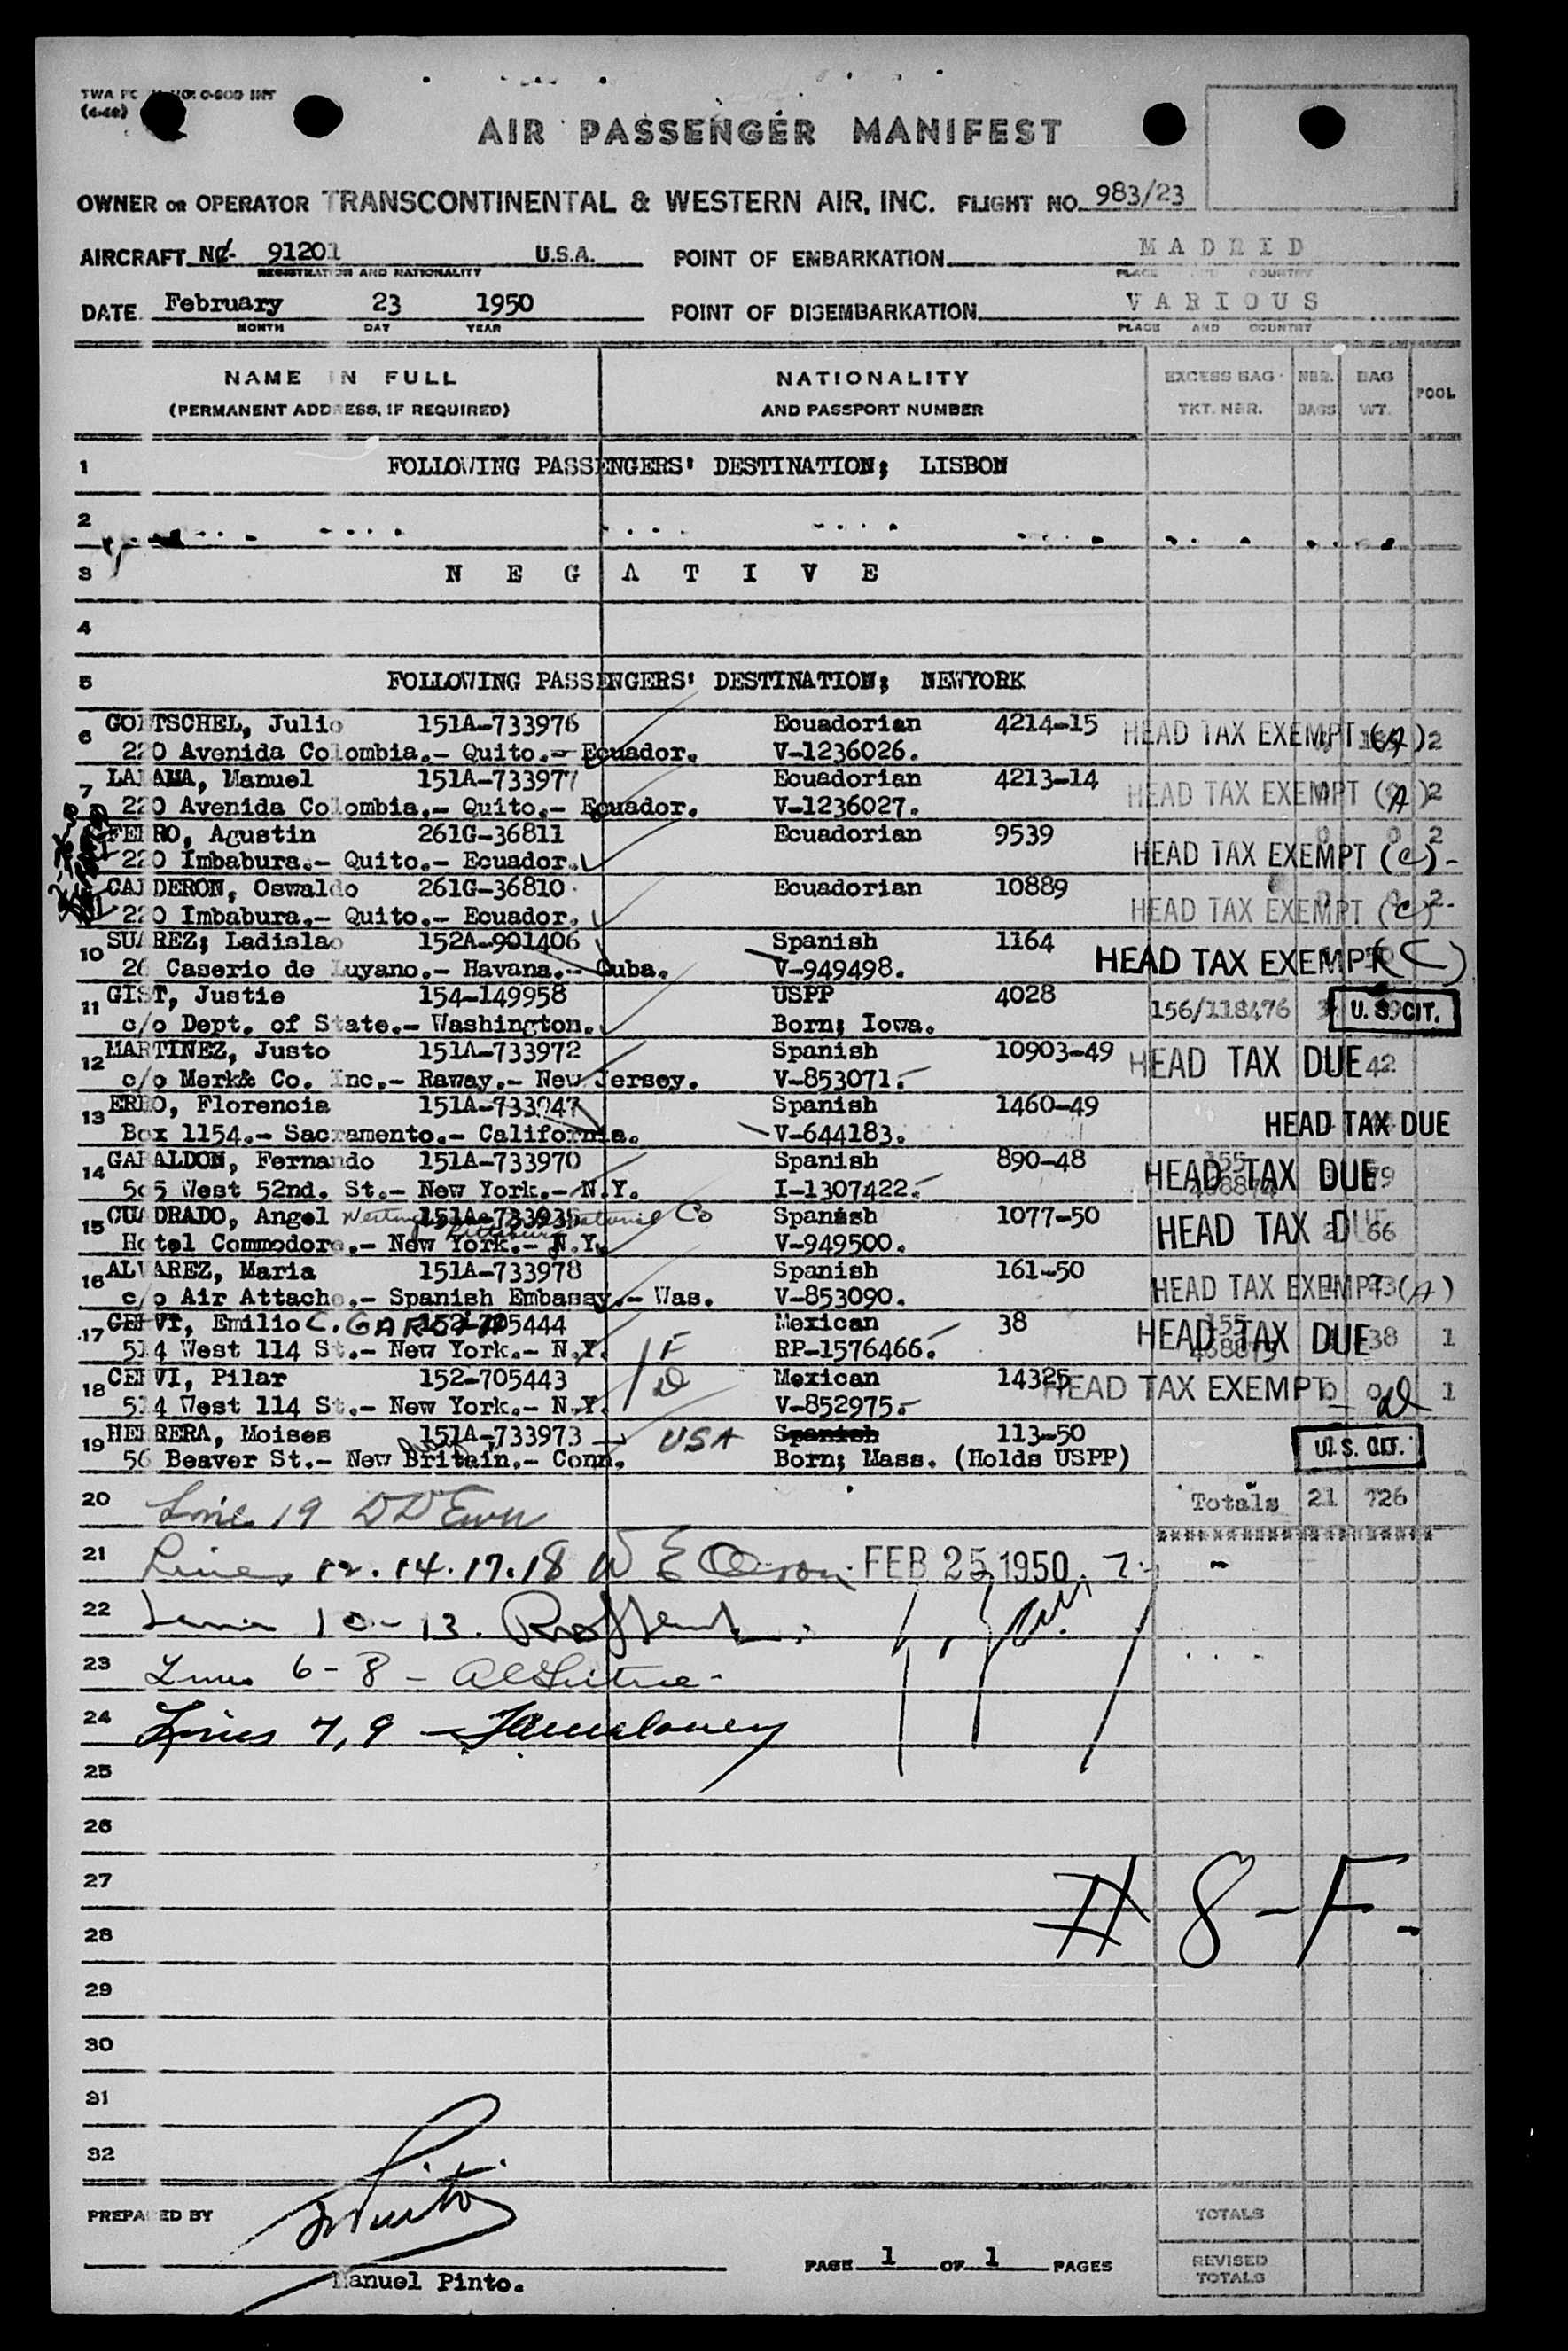 AIR PASSENGER MANIFEST
OWNER OR OPERATOR TRANSCONTINENTAL & WESTERN AIR, INC. FLIGHT NO. 983/23
AIRCRAFT NC- 91201 U.S.A. POINT OF EMBARKATION MADRID
REGISTRATION AND NATIONALITY PLACE AND COUNTRY
DATE February 23 1950 POINT OF DISEMBARKATION VARIOUS
MONTH DAY YEAR PLACE AND COUNTRY
NAME IN FULL NATIONALITY EXCESS BAG NBR. BAG POOL
(PERMANENT ADDRESS, IF REQUIRED) AND PASSPORT NUMBER TKT. NBR. BAGS WT.
1 FOLLOWING PASSENGERS' DESTINATION; LISBON
2
3 N E G A T I V E
4
5 FOLLOWING PASSENGERS' DESTINATION; NEWYORK
6 GOETSCHEL, Julio 151A-733976 Ecuadorian 4214-15 HEAD TAX EXEMPT (A) 2
220 Avenida Colombia.- Quito.- Ecuador. V-1236026.
7 Manuel 151A-733977 Ecuadorian 4213-14 HEAD TAX EXEMPT (A) 2
220 Avenida Colombia.- Quito.- Ecuador. V-1236027.
FERRO, Agustin 261G-36811 Ecuadorian 9539 0 0 2
220 Imbabura.- Quito.- Ecuador. HEAD TAX EXEMPT (C)-
CALDERON, Oswaldo 261G-36810 Ecuadorian 10889 0 0 2
220 Imbabura.- Quito.- Ecuador. HEAD TAX EXEMPT (C)
10 SUAREZ; Ladislao 152A-901406 Spanish 1164 HEAD TAX EXEMPT (C)
26 Caserio de Luyano.- Havana.- Cuba. V-949498.
11 GIST, Justie 154-149958 USPP 4028 156/118476 U.S. CIT.
c/o Dept. of State.- Washington. Born; Iowa.
12 MARTINEZ, Justo 151A-733972 Spanish 10903-49 HEAD TAX DUE 42
c/o Merk& Co. Inc.- Raway.- New Jersey. V-853071.
13 ERRO, Florencia 151A-733947 Spanish 1460-49 HEAD TAX DUE
Box 1154.- Sacramento.- California. V-644183.
14 GABALDON, Fernando 151A-733970 Spanish 890-48 HEAD TAX DUE
505 West 52nd. St.- New York.- N.Y. I-1307422.
15 CUADRADO, Angel 151A-733935 Co Spanish 1077-50 HEAD TAX DUE 66
Hotel Commodore.- New York.- N.Y. V-949500.
16 ALVAREZ, Maria 151A-733978 Spanish 161-50 HEAD TAX EXEMPT (A)
c/o Air Attache.- Spanish Embassy.- Was. V-853090.
17 CERVI, Emilio C. GARCIA 152-705444 Mexican 38 HEAD TAX DUE 38 1
514 West 114 St.- New York.- N.Y. 1 F RP-1576466.
18 CERVI, Pilar 152-705443 1 D Mexican 14325 HEAD TAX EXEMPT D 1
514 West 114 St.- New York.- N.Y. V-852975.
19 HERRERA, Moises 151A-733973 USA Spanish 113-50 U.S. CIT.
56 Beaver St.- New Britain.- Conn. Born; Mass. (Holds USPP)
20 Line 19 Totals 21 726
21 Lines 12.14.17.18 FEB 25 1950
22 10-13.
23 Lines 6-8 -
24 Lines 7,9 -
25
26
27
# 8-F-
28
29
30
31
32
PREPARED BY TOTALS
PAGE 1 OF 1 PAGES REVISED TOTALS
Manuel Pinto.